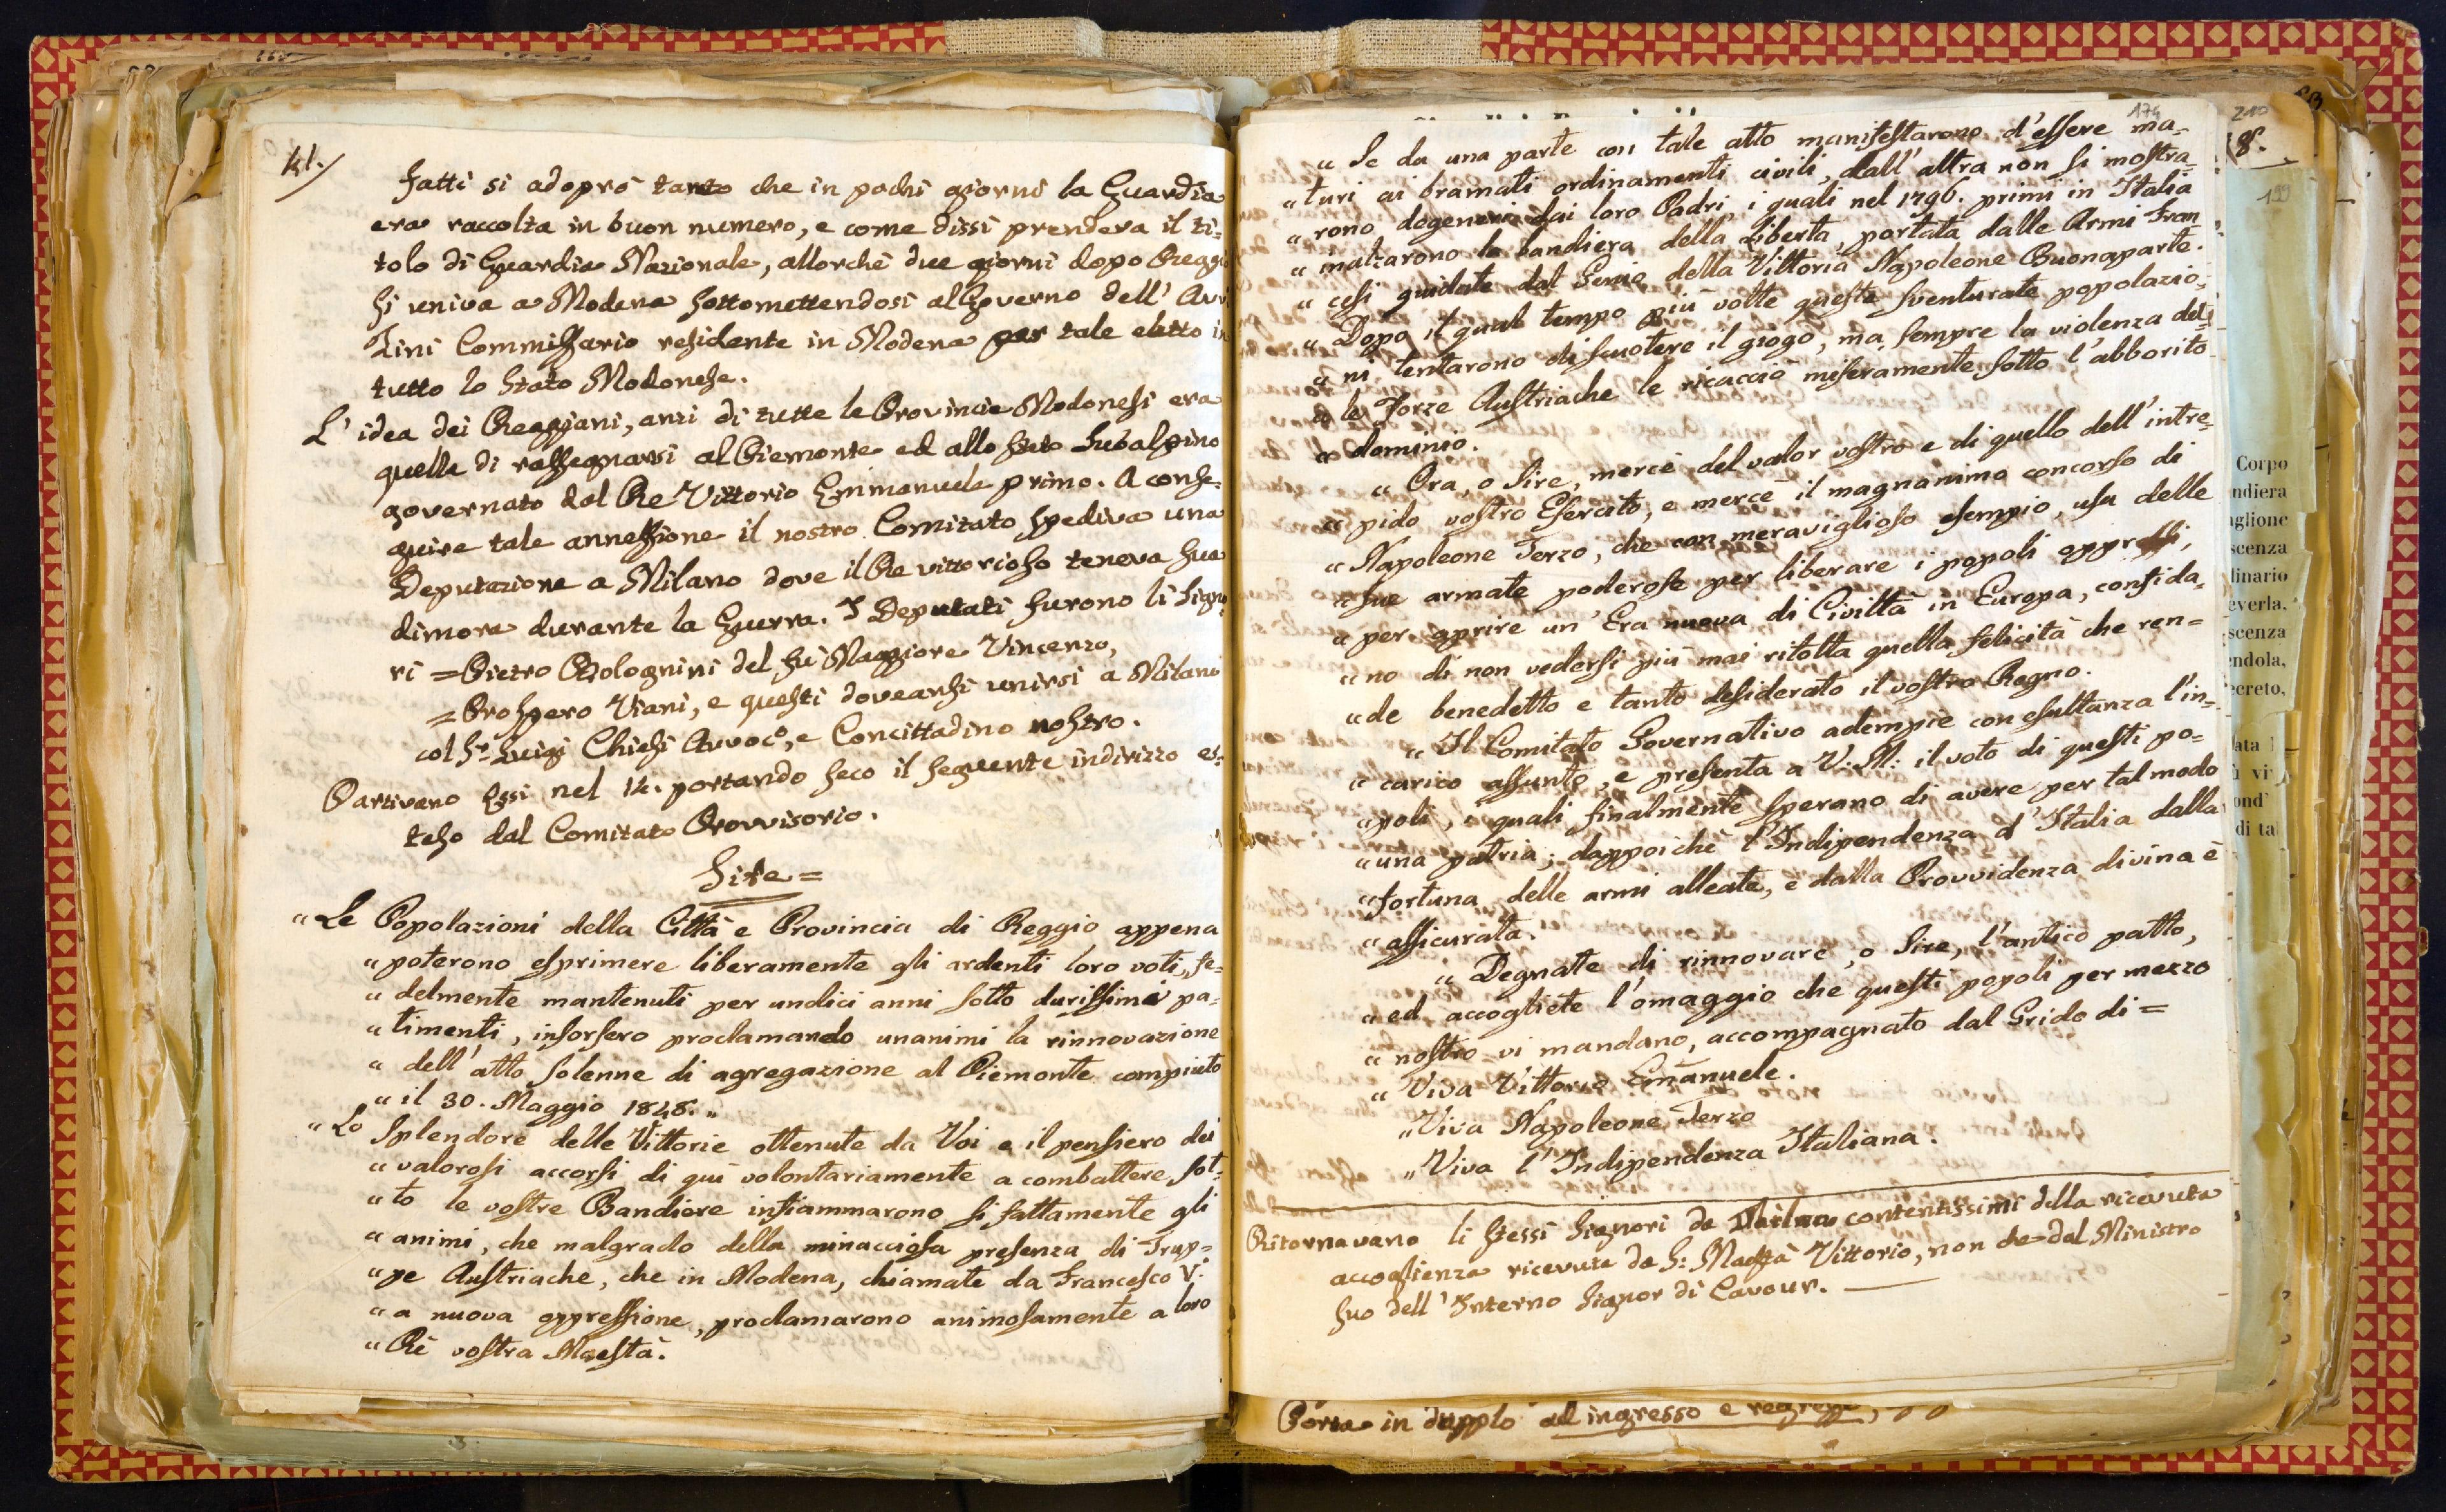 41.
Fatti si adoprò tanto che in pochi giorni la Guardia
era raccolta in buon numero, e come dissi prendeva il ti=
tolo di Guardia Nazionale, allorchè due giorni dopo Reggi
si univa a Modena sottomettendosi al Governo dell' Avv
Zini Commissario residente in Modena per tale eletto in
tutto lo Stato Modonese.
L' idea dei Reggiani, anzi di tutte le Provincie Modonesi era
quella di rassegnarsi al Piemonte ed allo Stato Subalpino
governato dal Re Vittorio Emmanuele primo. A conse=
guire tale annessione il nostro Comitato spediva una
Deputazione a Milano dove il Re vittorioso teneva sua
dimora durante la Guerra. I Deputati furono li Signo
ri = Pietro Bolognini del fù Maggiore Vincenzo,
= Prospero Viani, e questi doveansi unirsi a Milano
col Sr. Luigi Chiesi Avvoco, e Concittadino nostro.
Partivano Essi nel 14. portando seco il seguente indirizzo es=
teso dal Comitato Provvisorio.
Sire =
"Le Popolazioni della Città e Provincia di Reggio appena
" poterono esprimere liberamente gli ardenti loro voti, fe=
" delmente mantenuti per undici anni sotto durissimi pa=
" timenti, insorsero proclamando unanimi la rinnovazione
" dell' atto solenne di agregazione al Piemonte compiuto
" il 30. Maggio 1848. "
"Lo Splendore delle Vittorie ottenute da Voi e il pensiero dei
" valorosi accorsi di quì volontariamente a combattere sot=
" to le vostre Bandiere infiammarono si fattamente gli
" animi, che malgrado della minacciosa presenza di Trup=
" pe Austriache, che in Modena, chiamate da Francesco V.
" a nuova oppressione, proclamarono animosamente a loro
" Rè vostra Maestà.
174
" Se da una parte con tale atto manifestarono d'essere ma=
" turi ai bramati ordinamenti civili, dall' altra non si mostra=
" rono degeneri dai loro Padri, i quali nel 1796. primi in Italia
" inalzarono la bandiera della Libertà, portata dalle Armi Fran
" cesi guidate dal Genio della Vittoria Napoleone Buonaparte.
" Dopo il qual tempo più volte queste sventurate popolazio=
" ni tentarono di scuotere il giogo, ma sempre la violenza del=
" le Forze Austriache le ricacciò miseramente sotto l'abborito
" dominio.
" Ora, o Sire, mercè del valor vostro e di quello dell' intre=
" pido vostro Esercito, e mercè il magnanimo concorso di
" Napoleone Terzo, che con meraviglioso esempio, usa delle
" sue armate poderose per liberare i popoli oppressi,
" per aprire un' Era nuova di Civiltà in Europa, confida=
" no di non vedersi più mai ritolta quella felicità che ren=
" de benedetto e tanto desiderato il vostro Regno.
" Il Comitato Governativo adempie con esultanza l'in=
" carico assunto, e presenta a V: M: il voto di questi po=
" poli, i quali finalmente sperano di avere per tal modo
" una patria; dappoichè l'Indipendenza d' Italia dalla
" fortuna delle armi alleate, e dalla Provvidenza divina è
" assicurata.
" Degnate di rinnovare, o Sire, l'antico patto,
" ed accogliete l'omaggio che questi popoli per mezzo
" nostro vi mandano, accompagnato dal Grido di =
" Viva Vittorio Emanuele.
" Viva Napoleone Terzo
" Viva l'Indipendenza Italiana.
Ritornavano li stessi Signori da contentissimi della ricevuta
accoglienza ricevuta da S: Maestà Vittorio, non che dal Ministro
suo dell' Interno Signor di Cavour.
Porta in dupplo ad ingresso e
210
8.
199
Corpo
ndiera
aglione
scenza
linario
everla,
scenza
endola,
ecreto,
ata
vi
ond'
di ta